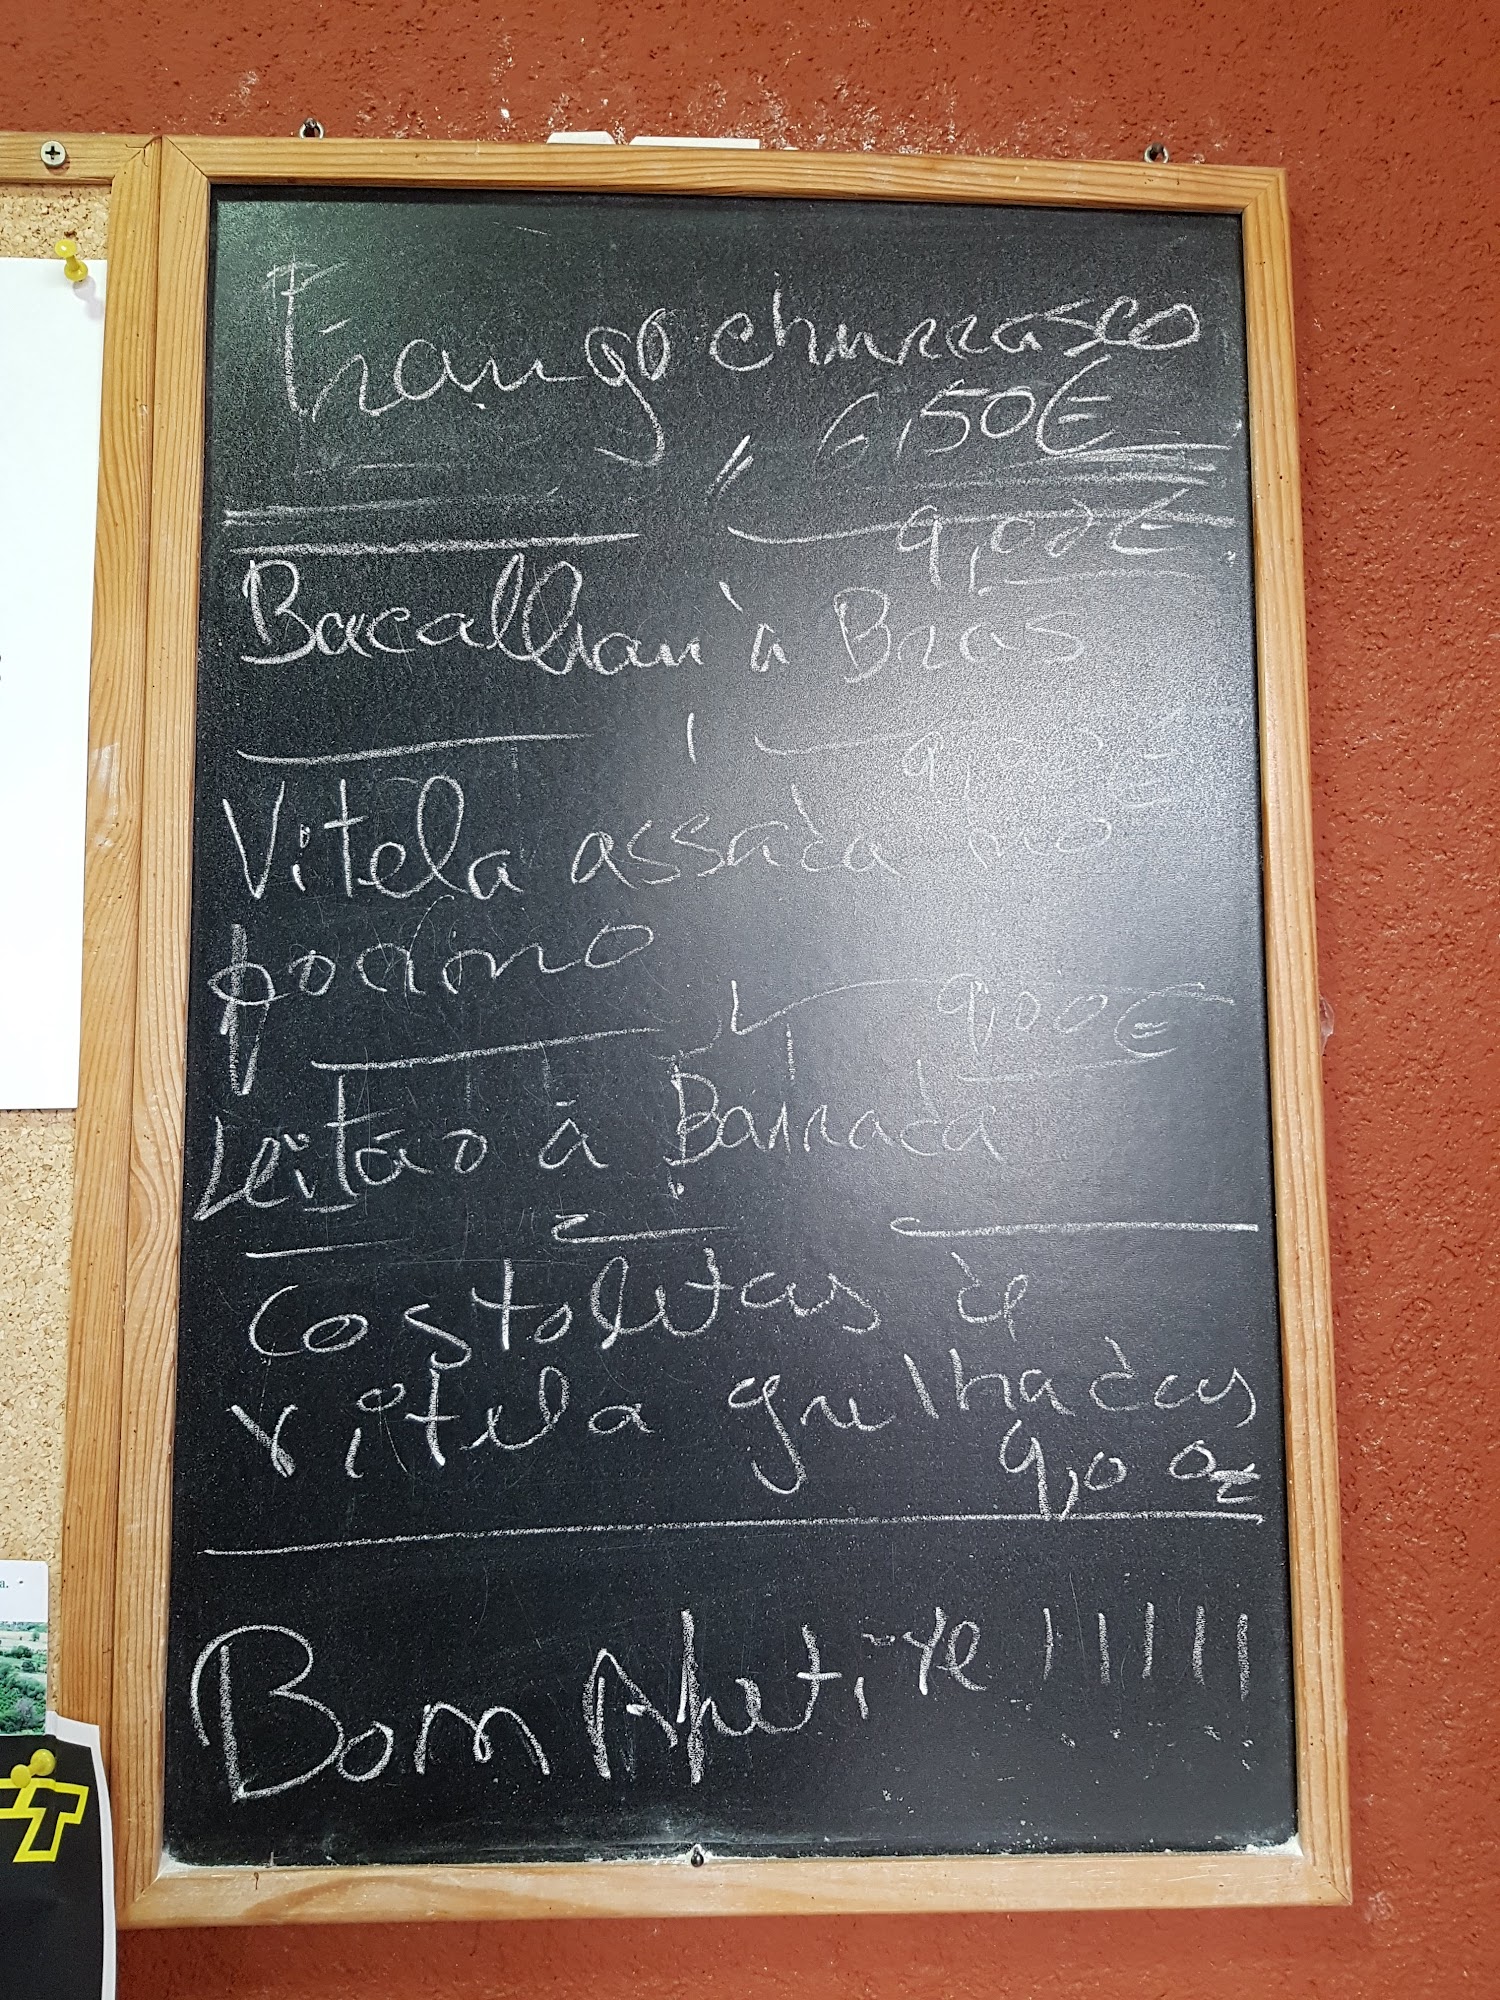 Frango churrasco
6,50€
9,00€
Bacalhau à Brás
9,00€
Vitela assada no
podino
9,00€
Leitão à Bairrada
Costoletas de
vitela grelhadas
9,00€
Bom Apetite !!!!!